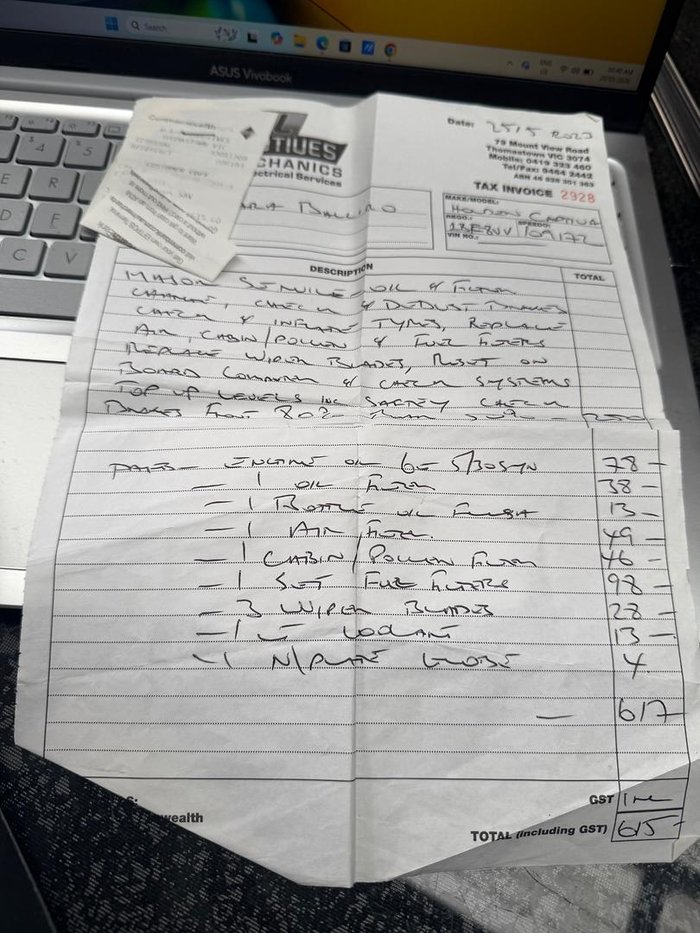 Search
ASUS Vivobook
Commonwealth
TIVES
CHANICS
ectrical Services
Date: 25/5 2023
79 Mount View Road
Thomastown VIC 3074
Mobile: 0419 323 460
Tel/Fax: 9464 2442
TAX INVOICE 2928
MAKE/MODEL: HOLDEN CAPTIVA
REGO.: SPEEDO:
VIN NO.:
DESCRIPTION TOTAL
MAJOR SERVICE - OIL & FILTER
CHANGE, CHECK & DEDUST BRAKES
CHECK & INFLATE TYRES, REPLACE
AIR, CABIN/POLLEN & FUEL FILTERS
REPLACE WIPER BLADES, RESET ON
BOARD COMPUTER & CHECK SYSTEMS
TOP UP LEVELS INC SAFTEY CHECK
BRAKES FRONT 80% REAR 250
PARTS - ENGINE OIL 6L 5/30SYN 78 -
- 1 OIL FILTER 38 -
- 1 BOTTLE OIL FLUSH 13 -
- 1 AIR FILTER 49 -
- 1 CABIN/POLLEN FILTER 46 -
- 1 SET FUEL FILTERS 98 -
- 3 WIPER BLADES 28 -
- 1 LT COOLANT 13 -
- 1 N/PLATE GLOBE 4
- 617
GST INC
wealth
TOTAL (including GST) 615 -